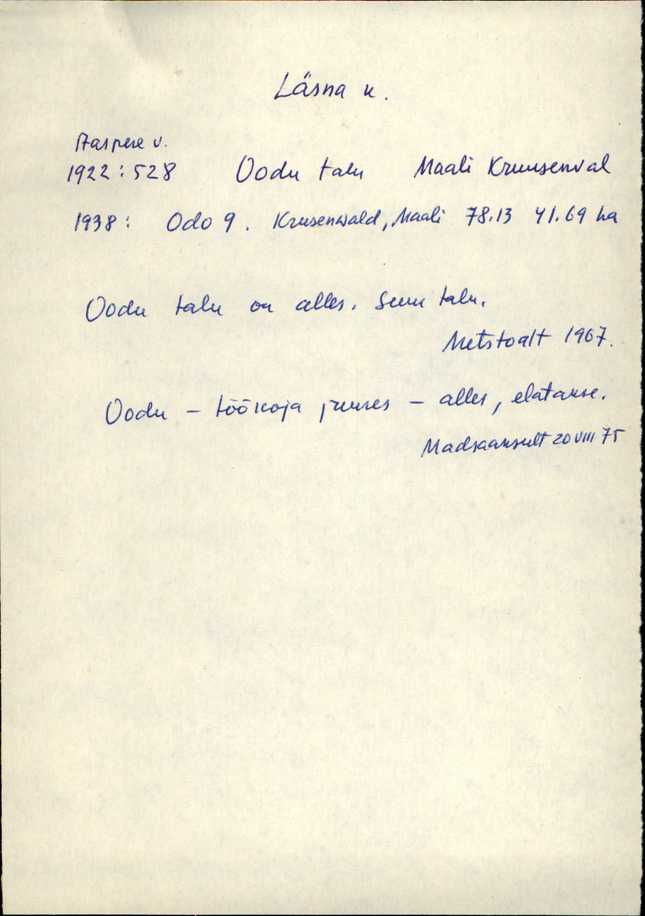 Läsna k.
Aaspere v.
1922: 528 Oodu talu Maali Kruusenval
1938: Odo 9. Krusenwald, Maali 78.13 41.69 ha
Oodu talu on alles. Suur talu.
Metstoalt 1967.
Oodu – töökoja juures – alles, elatakse.
20 VIII 75